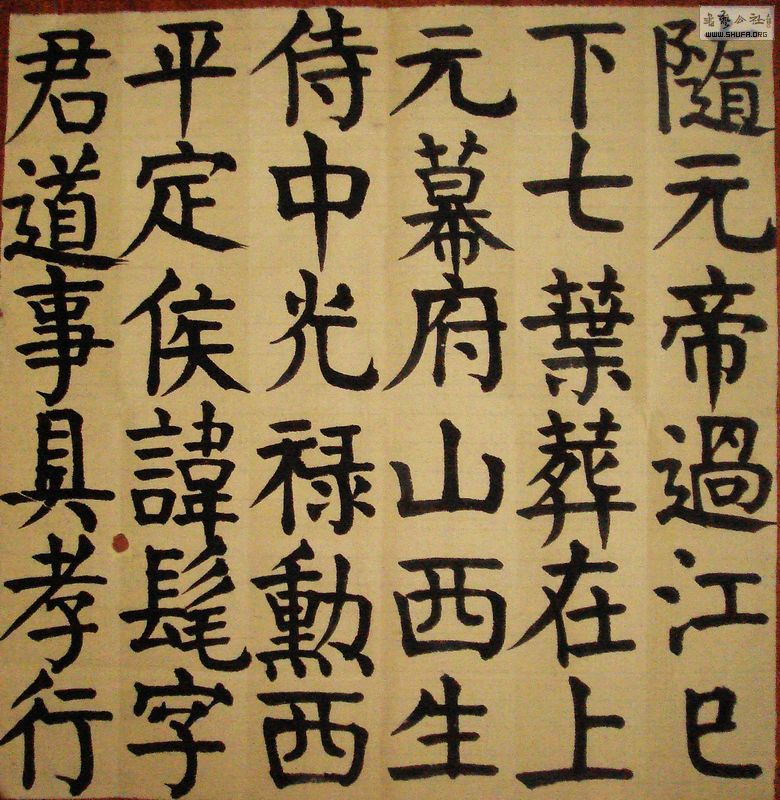 隨元帝過江已
下七葉葬在上
元幕府山西生
侍中光禄勳西
平定侯諱髦字
君道事具孝行
WWW.SHUFA.ORG